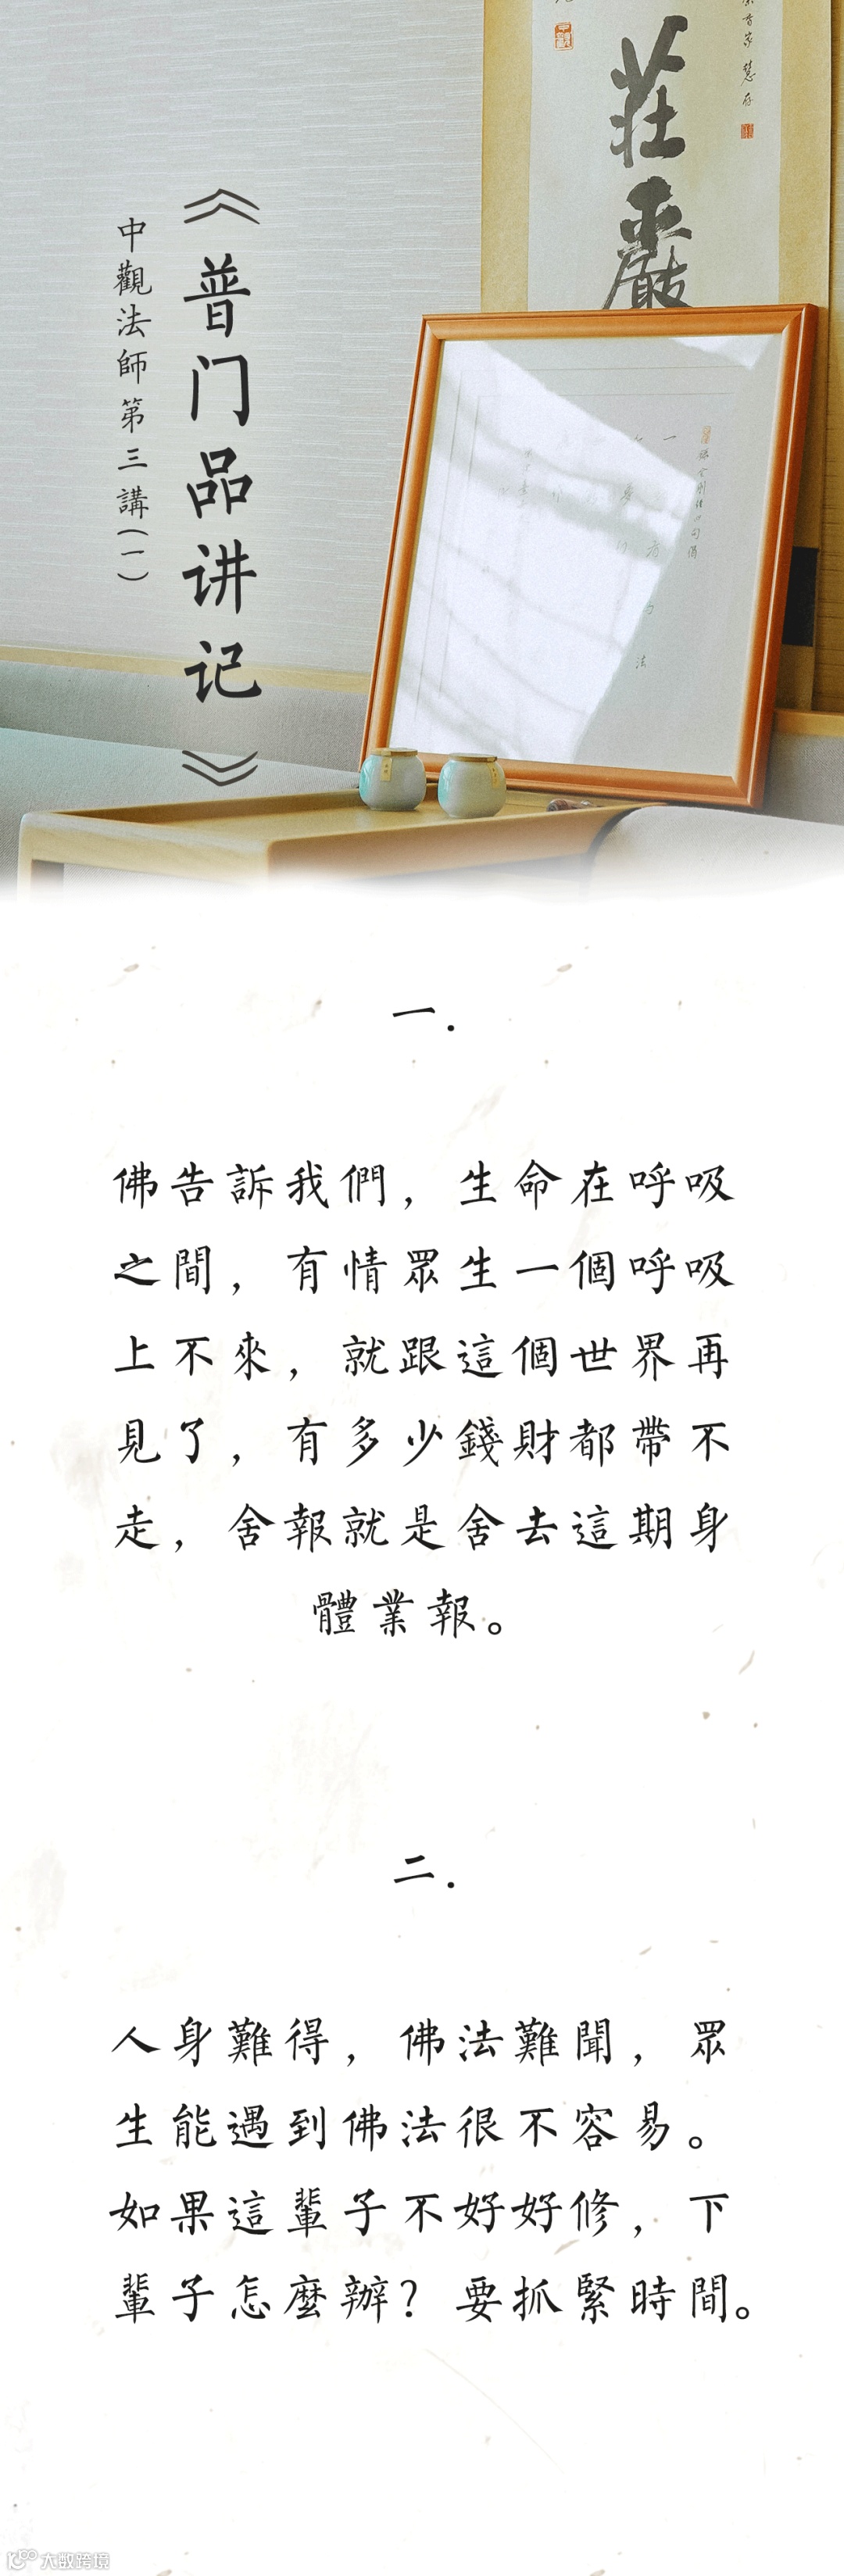 莊嚴
《普门品讲记》
中觀法師第三講（一）
一.
佛告訴我們，生命在呼吸
之間，有情眾生一個呼吸
上不來，就跟這個世界再
見了，有多少錢財都帶不
走，舍報就是舍去這期身
體業報。
二.
人身難得，佛法難聞，眾
生能遇到佛法很不容易。
如果這輩子不好好修，下
輩子怎麼辦？要抓緊時間。
大数跨境